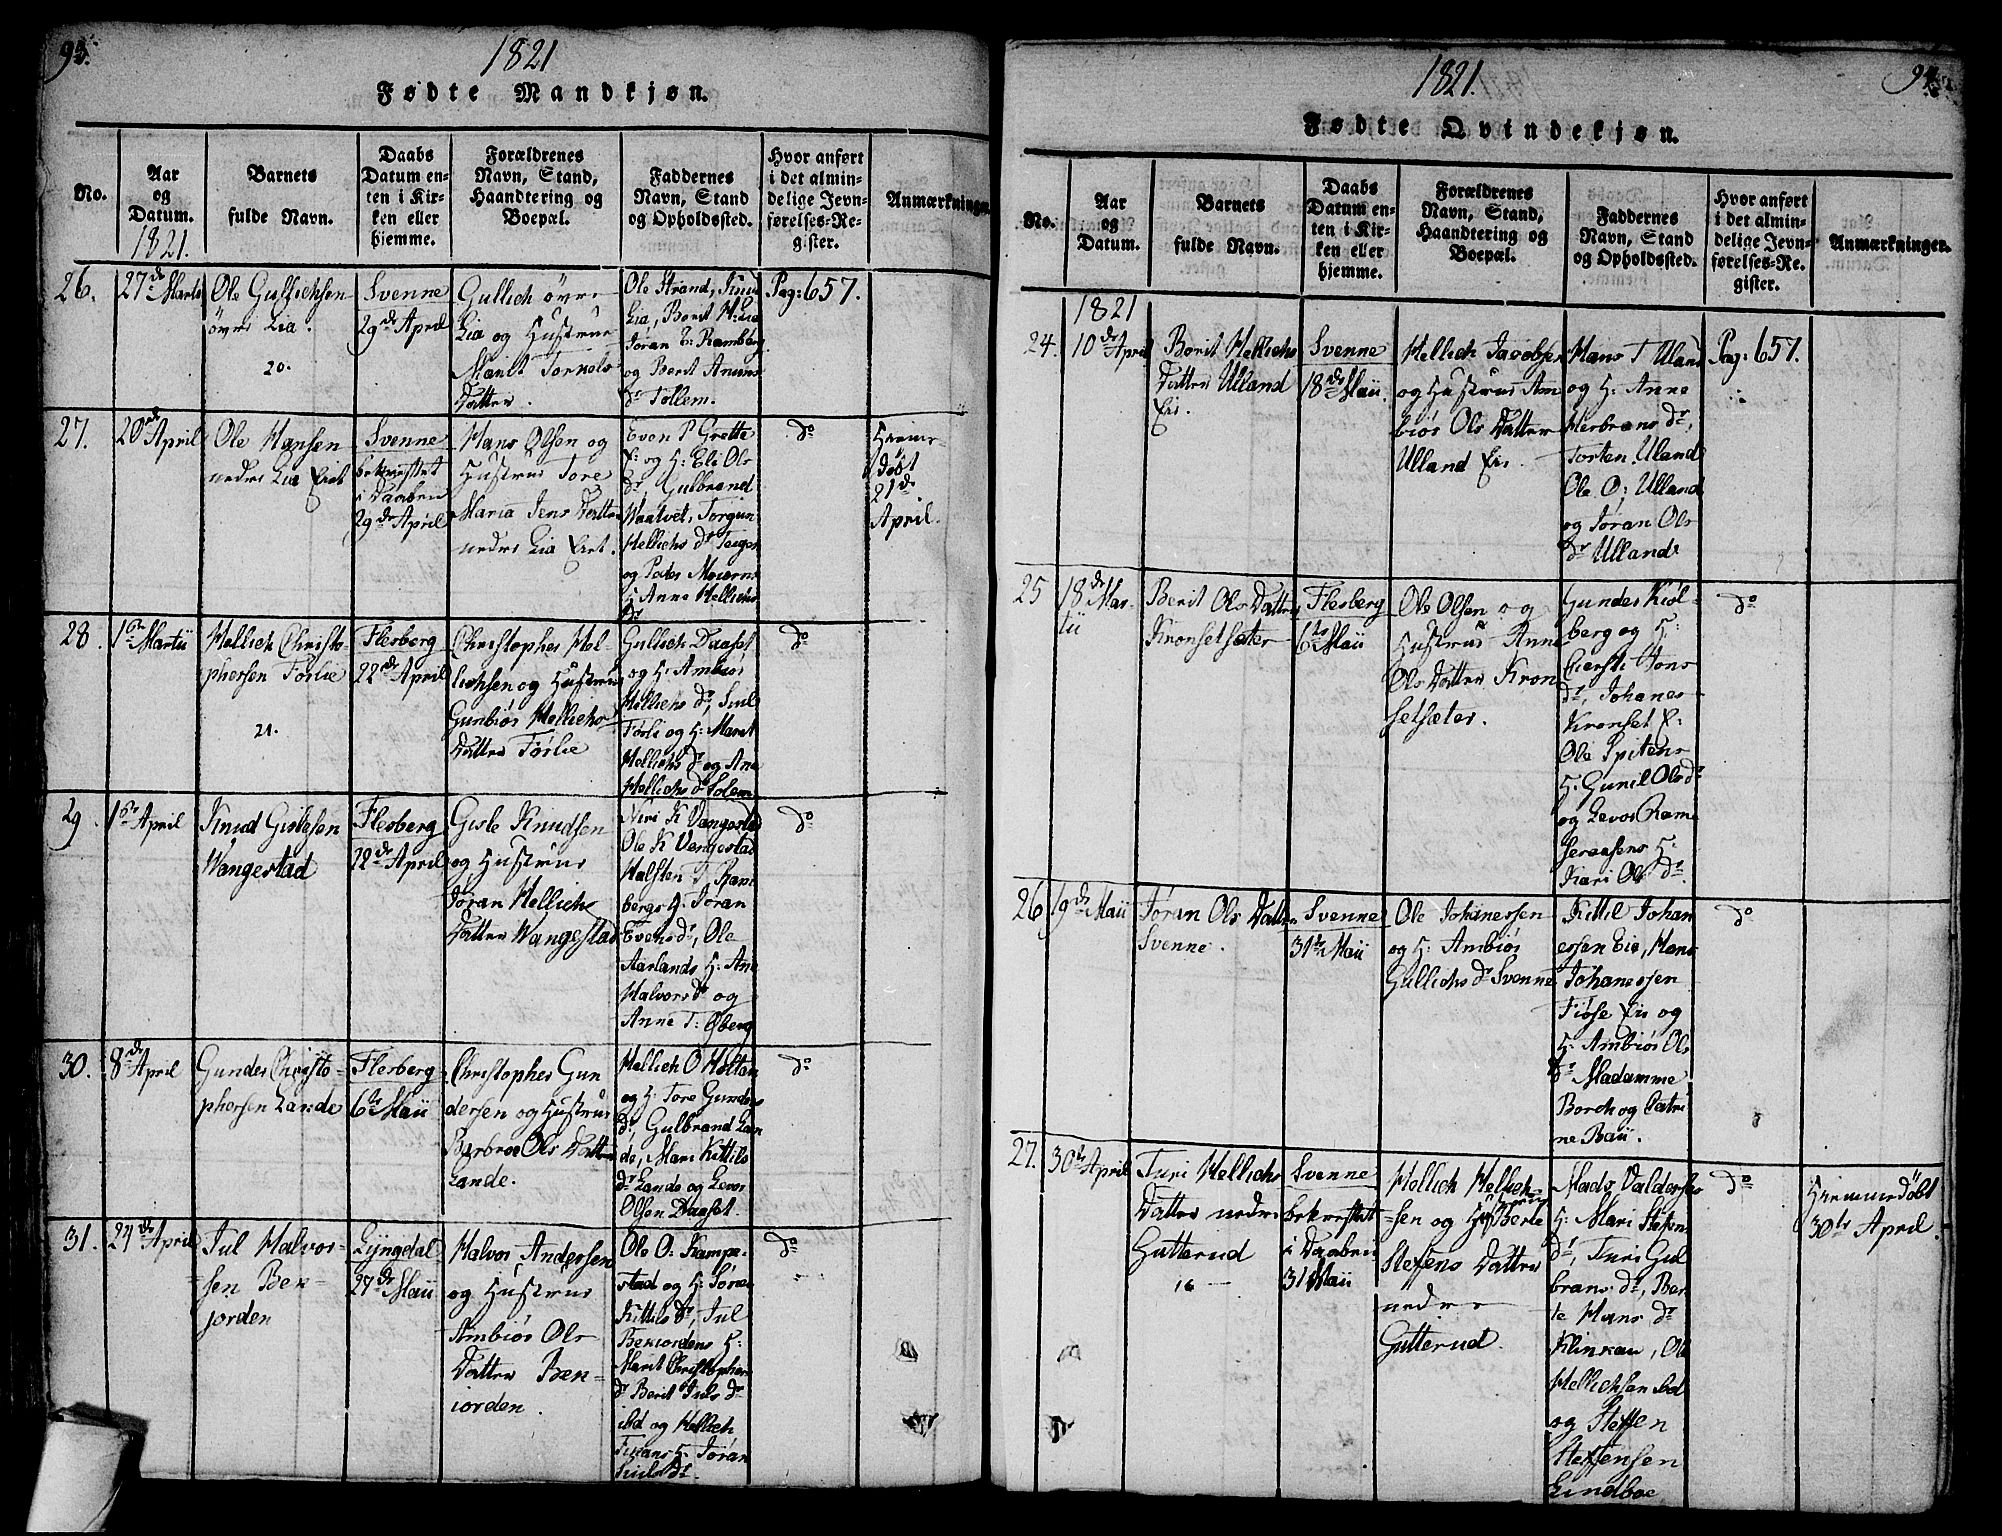 94.
1821
Fødte Mandkjøn.
No.
Aar
og
Datum.
1821.
Barnets
fulde Navn.
Daabs
Datum en-
ten i Kir-
ken eller
hjemme.
Forældrenes
Navn, Stand,
Haandtering og
Boepæl.
Faddernes
Navn, Stand
og Opholdssted.
Hvor anført
i det almin-
delige Jevn-
førelses-Re-
gister.
Anmærkninger.
26.
27de Martii
Ole Gullichsen
øvre Lia.
20.
Svenne
29de April
Gullich øvre
Lia og Hustrue
Marit Torkels
Datter.
Ole Strand, Knud
Lia, Berit H: Lia
Jøran T: Ramberg
og Berit Anuns
dr Tollem.
Pag: 657.
27.
20de April
Ole Hansen
nedre Lia Eiet
Svenne
bekræftet
i Daaben
29de April
Hans Olsen og
Hustrue Tore
Maria Jens Datter
nedre Lia Eiet.
Even P Grette
E: og H: Eli Ols
dr, Gulbrand
Waatvet, Torgun
Hellichs dr Teigen
og Peder Moierns
H Anne Hellichs
dr
do
Hiemme-
døbt
21de
April.
28.
1ste Martii
Hellich Christo-
phersen Førlie
21.
Flesberg
22de April
Christopher Hel-
lichsen og Hustrue
Gunbiør Hellichs
Datter Førlie
Gullich Daaset
og H: Ambiør
Hellichs dr, Juul
Førli og H: Marit
Hellichs dr og Ane
Hellichs dr Solem
do
29.
1ste April
Knud Gislesen
Wangestad
Flesberg
22de April
Gisle Knudsen
og Hustrue
Jøran Hellichs
Datter Wangestad
Niri K Vangestad
Ole K Vangestad
Halsten T Ram-
bergs H: Jøran
Evens dr, Ole
Aarlands H: Ane
Halvors dr og
Anne T: Øberg
do
30.
8de April
Gunder Christo-
phersen Lande
Flesberg
6te Maii
Christopher Gun
dersen og Hustrue
Barbroe Ols Datter
Lande.
Hellich O Holtan
og H: Tore Gunders
dr, Gulbrand Lan
de, Mari Kittils
dr Lande og Levor
Olsen Daaset
do
31.
24de April
Jul Halvor-
sen Bek-
jorden
Lyngdal
27de Maii
Halvor Andersen
og Hustrue
Ambiør Ols
Datter Bek-
iorden.
Ole O. Kampe-
stad og H: Jøran
Kittils dr, Jul
Bekiordens H:
Marit Christophers
dr Berit Juls dr
ibd og Hellich
H: Jøran
dr
do
1821.
94.
Fødte Qvindekjøn.
No.
Aar
og
Datum.
Barnets
fulde Navn.
Daabs
Datum en-
ten i Kir-
ken eller
hjemme.
Forældrenes
Navn, Stand,
Haandtering og
Boepæl.
Faddernes
Navn, Stand
og Opholdssted.
Hvor anført
i det almin-
delige Jevn-
førelses-Re-
gister.
Anmærkninger.
1821
24.
10de April
Berit Hellichs
Datter Ulland
Eie.
Svenne
18de Maii.
Hellich Jacobsen
og Hustrue Am
biør Ols Datter
Ulland Eie.
Hans T Uland
og H: Anne
Herbrans dr,
Torsten Uland
Ole O: Ulland
og Jøran Ols
dr Ulland
Pag: 657.
25
18de Mar-
tii
Berit Ols Datter
Kronsetsæter
Flesberg
6te Maii
Ole Olsen og
Hustrue Anne
Ols Datter Kron
setsæter.
Gunder Kiøl-
berg og H:
Kiersti Jons
dr, Johanes
Kronset E:
Ole Spitens
H: Gunil Ols dr
og Levor Rame
seraasens H:
Kari Ols dr.
do
26
19de Maii
Jøran Ols Datter
Svenne.
Svenne
31te Maii
Ole Johanessen
og H: Ambiør
Gullichs dr Svenne
Kittil Johan
essen Eie, Hans
Johanessen
Fiøse Eie og
H: Ambiør Ols
dr Madamme
Borch og Catri
ne Bay.
do
27.
30te April
Turi Hellichs
Datter nedre
Gutterud
16
Svenne
bekræftet
i Daaben
31 Maii
Hellich Hellich-
sen og Hustrue Berte
Steffens Datter
nedre
Gutterud.
Mads Valdersen
H: Mari Stefens
dr, Turi Gul
brans dr, Ber-
te Hans dr
Klinkau, Ole
Hellichsen ibd
og Steffen
Steffensen
Lindboe
do
Hiemmedøbt
30te April.